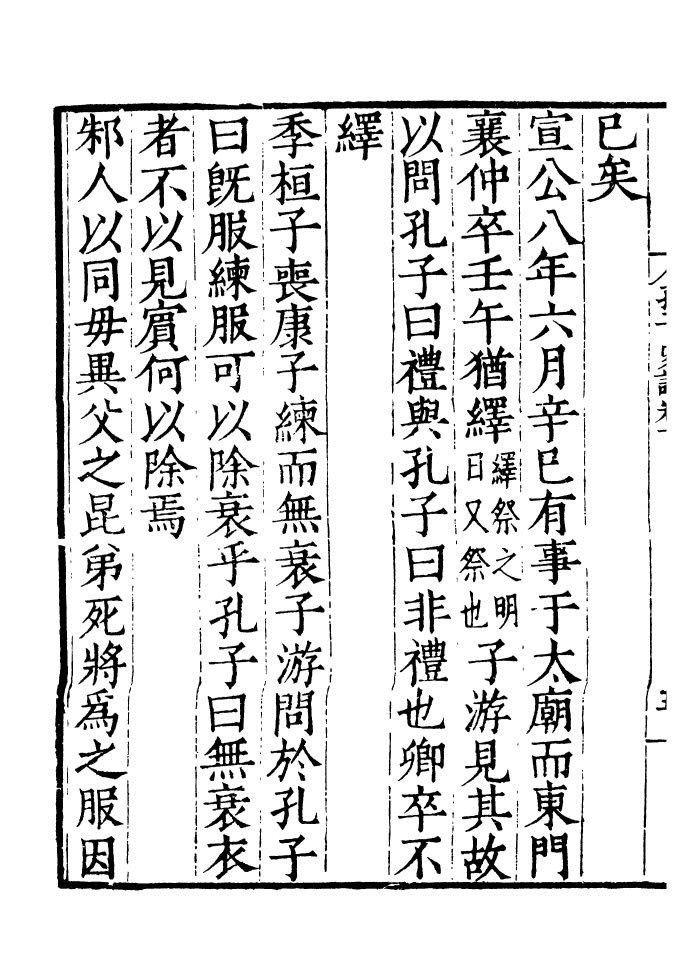 已矣
宣公八年六月辛巳有事于太廟而東門
襄仲卒壬午猶繹繹祭之明日又祭也子游見其故
以問孔子曰禮與孔子曰非禮也卿卒不
繹
季桓子喪康子練而無衰子游問於孔子
曰旣服練服可以除衰乎孔子曰無衰衣
者不以見賔何以除焉
邾人以同毋異父之昆弟死將爲之服因